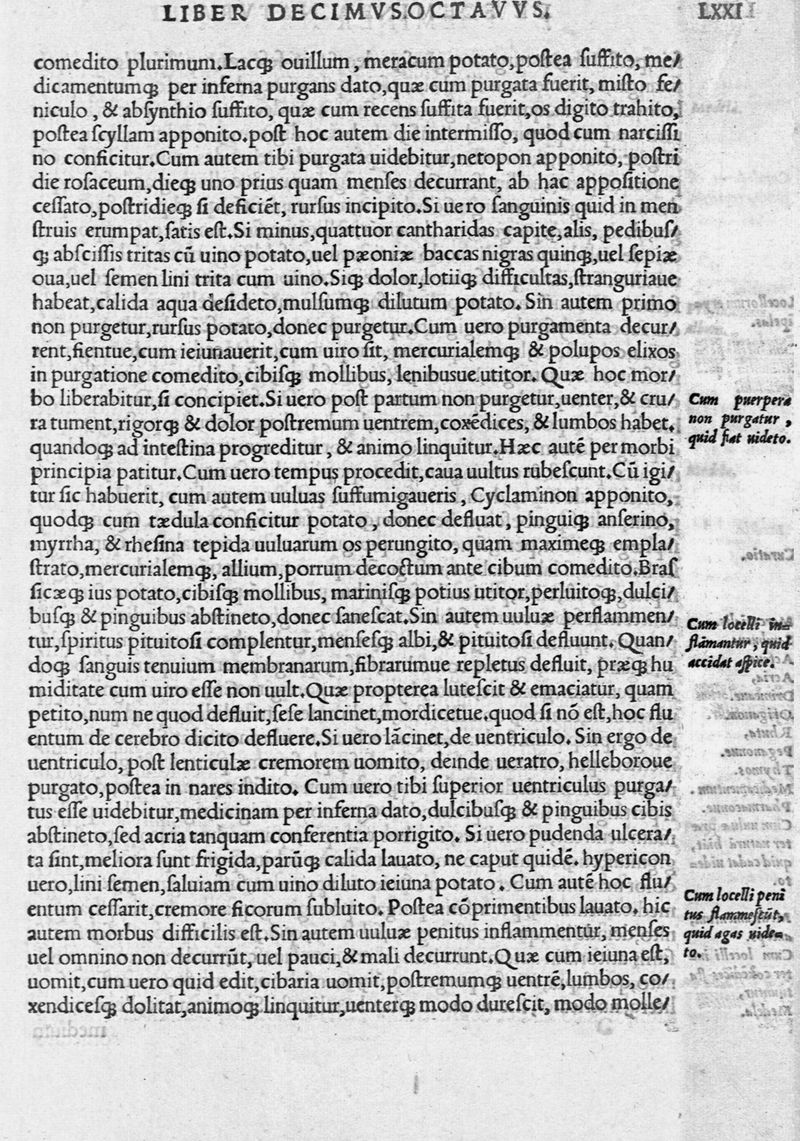 LIBER DECIMVSOCTAVVS.
LXXI
comedito plurimum.Lacq́ꝫ ouillum, meracum potato,poſtea ſuffito, me/
dicamentumq́ꝫ per inferna purgans dato,quæ cum purgata fuerit, miſto fe/
niculo, & abſynthio ſuffito, quæ cum recens ſuffita fuerit,os digito trahito,
poſtea ſcyllam apponito.poſt hoc autem die intermiſſo, quod cum narciſſi
no conficitur.Cum autem tibi purgata uidebitur,netopon apponito, poſtri
die roſaceum,dieq́ꝫ uno prius quam menſes decurrant, ab hac appoſitione
ceſſato,poſtridieq́ꝫ ſi deficiẽt, rurſus incipito.Si uero ſanguinis quid in men
ſtruis erumpat,ſatis eſt.Si minus,quattuor cantharidas capite,alis, pedibuſ/
q́ꝫ abſciſſis tritas cũ uino potato,uel pæoniæ baccas nigras quinq́ꝫ,uel ſepiæ
oua,uel ſemen lini trita cum uino.Siq́ꝫ dolor,lotiiq́ꝫ difficultas,ſtranguriaue
habeat,calida aqua deſideto,mulſumq́ꝫ dilutum potato. Sin autem primo
non purgetur,rurſus potato,donec purgetur.Cum uero purgamenta decur/
rent,fientue,cum ieiunauerit,cum uiro ſit, mercurialemq́ꝫ & polupos elixos
in purgatione comedito,cibiſq́ꝫ mollibus, lenibusue utitor. Quæ hoc mor/
bo liberabitur,ſi concipiet.Si uero poſt partum non purgetur,uenter,& cru/
ra tument,rigorq́ꝫ & dolor poſtremum uentrem,coxẽdices, & lumbos habet,
quandoq́ꝫ ad inteſtina progreditur, & animo linquitur.Hæc autẽ per morbi
principia patitur.Cum uero tempus procedit,caua uultus rubeſcunt.Cũ igi/
tur ſic habuerit, cum autem uuluas ſuffumigaueris, Cyclaminon apponito,
quodq́ꝫ cum tædula conficitur potato, donec defluat, pinguiq́ꝫ anſerino,
myrrha, & rheſina tepida uuluarum os perungito, quam maximeq́ꝫ empla/
ſtrato,mercurialemq́ꝫ, allium,porrum decoctum ante cibum comedito.Braſ
ſicæq́ꝫ ius potato,cibiſq́ꝫ mollibus, mariniſq́ꝫ potius utitor,perluitoq́ꝫ,dulci/
buſq́ꝫ & pinguibus abſtineto,donec ſaneſcat.Sin autem uuluæ perflammen/
tur,ſpiritus pituitoſi complentur,menſeſq́ꝫ albi,& pituitoſi defluunt. Quan/
doq́ꝫ ſanguis tenuium membranarum,fibrarumue repletus defluit, præq́ꝫ hu
miditate cum uiro eſſe non uult.Quæ propterea luteſcit & emaciatur, quam
petito,num ne quod defluit,ſeſe lancinet,mordicetue.quod ſi nõ eſt,hoc flu/
entum de cerebro dicito defluere.Si uero lãcinet,de uentriculo. Sin ergo de
uentriculo, poſt lenticulæ cremorem uomito, deinde ueratro, helleboroue
purgato,poſtea in nares indito. Cum uero tibi ſuperior uentriculus purga/
tus eſſe uidebitur,medicinam per inferna dato,dulcibuſq́ꝫ & pinguibus cibis
abſtineto,ſed acria tanquam conferentia porrigito. Si uero pudenda ulcera/
ta ſint,meliora ſunt frigida,parũq́ꝫ calida lauato, ne caput quidẽ. hypericon
uero,lini ſemen,ſaluiam cum uino diluto ieiuna potato. Cum autẽ hoc flu/
entum ceſſarit,cremore ficorum ſubluito. Poſtea cõprimentibus lauato. hic
autem morbus difficilis eſt.Sin autem uuluæ penitus inflammentur, menſes
uel omnino non decurrũt,uel pauci,& mali decurrunt.Quæ cum ieiuna eſt,
uomit,cum uero quid edit,cibaria uomit,poſtremumq́ꝫ uentrẽ,lumbos, co/
xendiceſq́ꝫ dolitat,animoq́ꝫ linquitur,uenterq́ꝫ modo dureſcit, modo molle/
Cum puerpera
non purgatur,
quid fiat uideto.
Cum locelli in=
flãmantur, quid
accidat aſpice.
Cum locelli peni
tus flammeſcũt,
quid agas uide=
to.